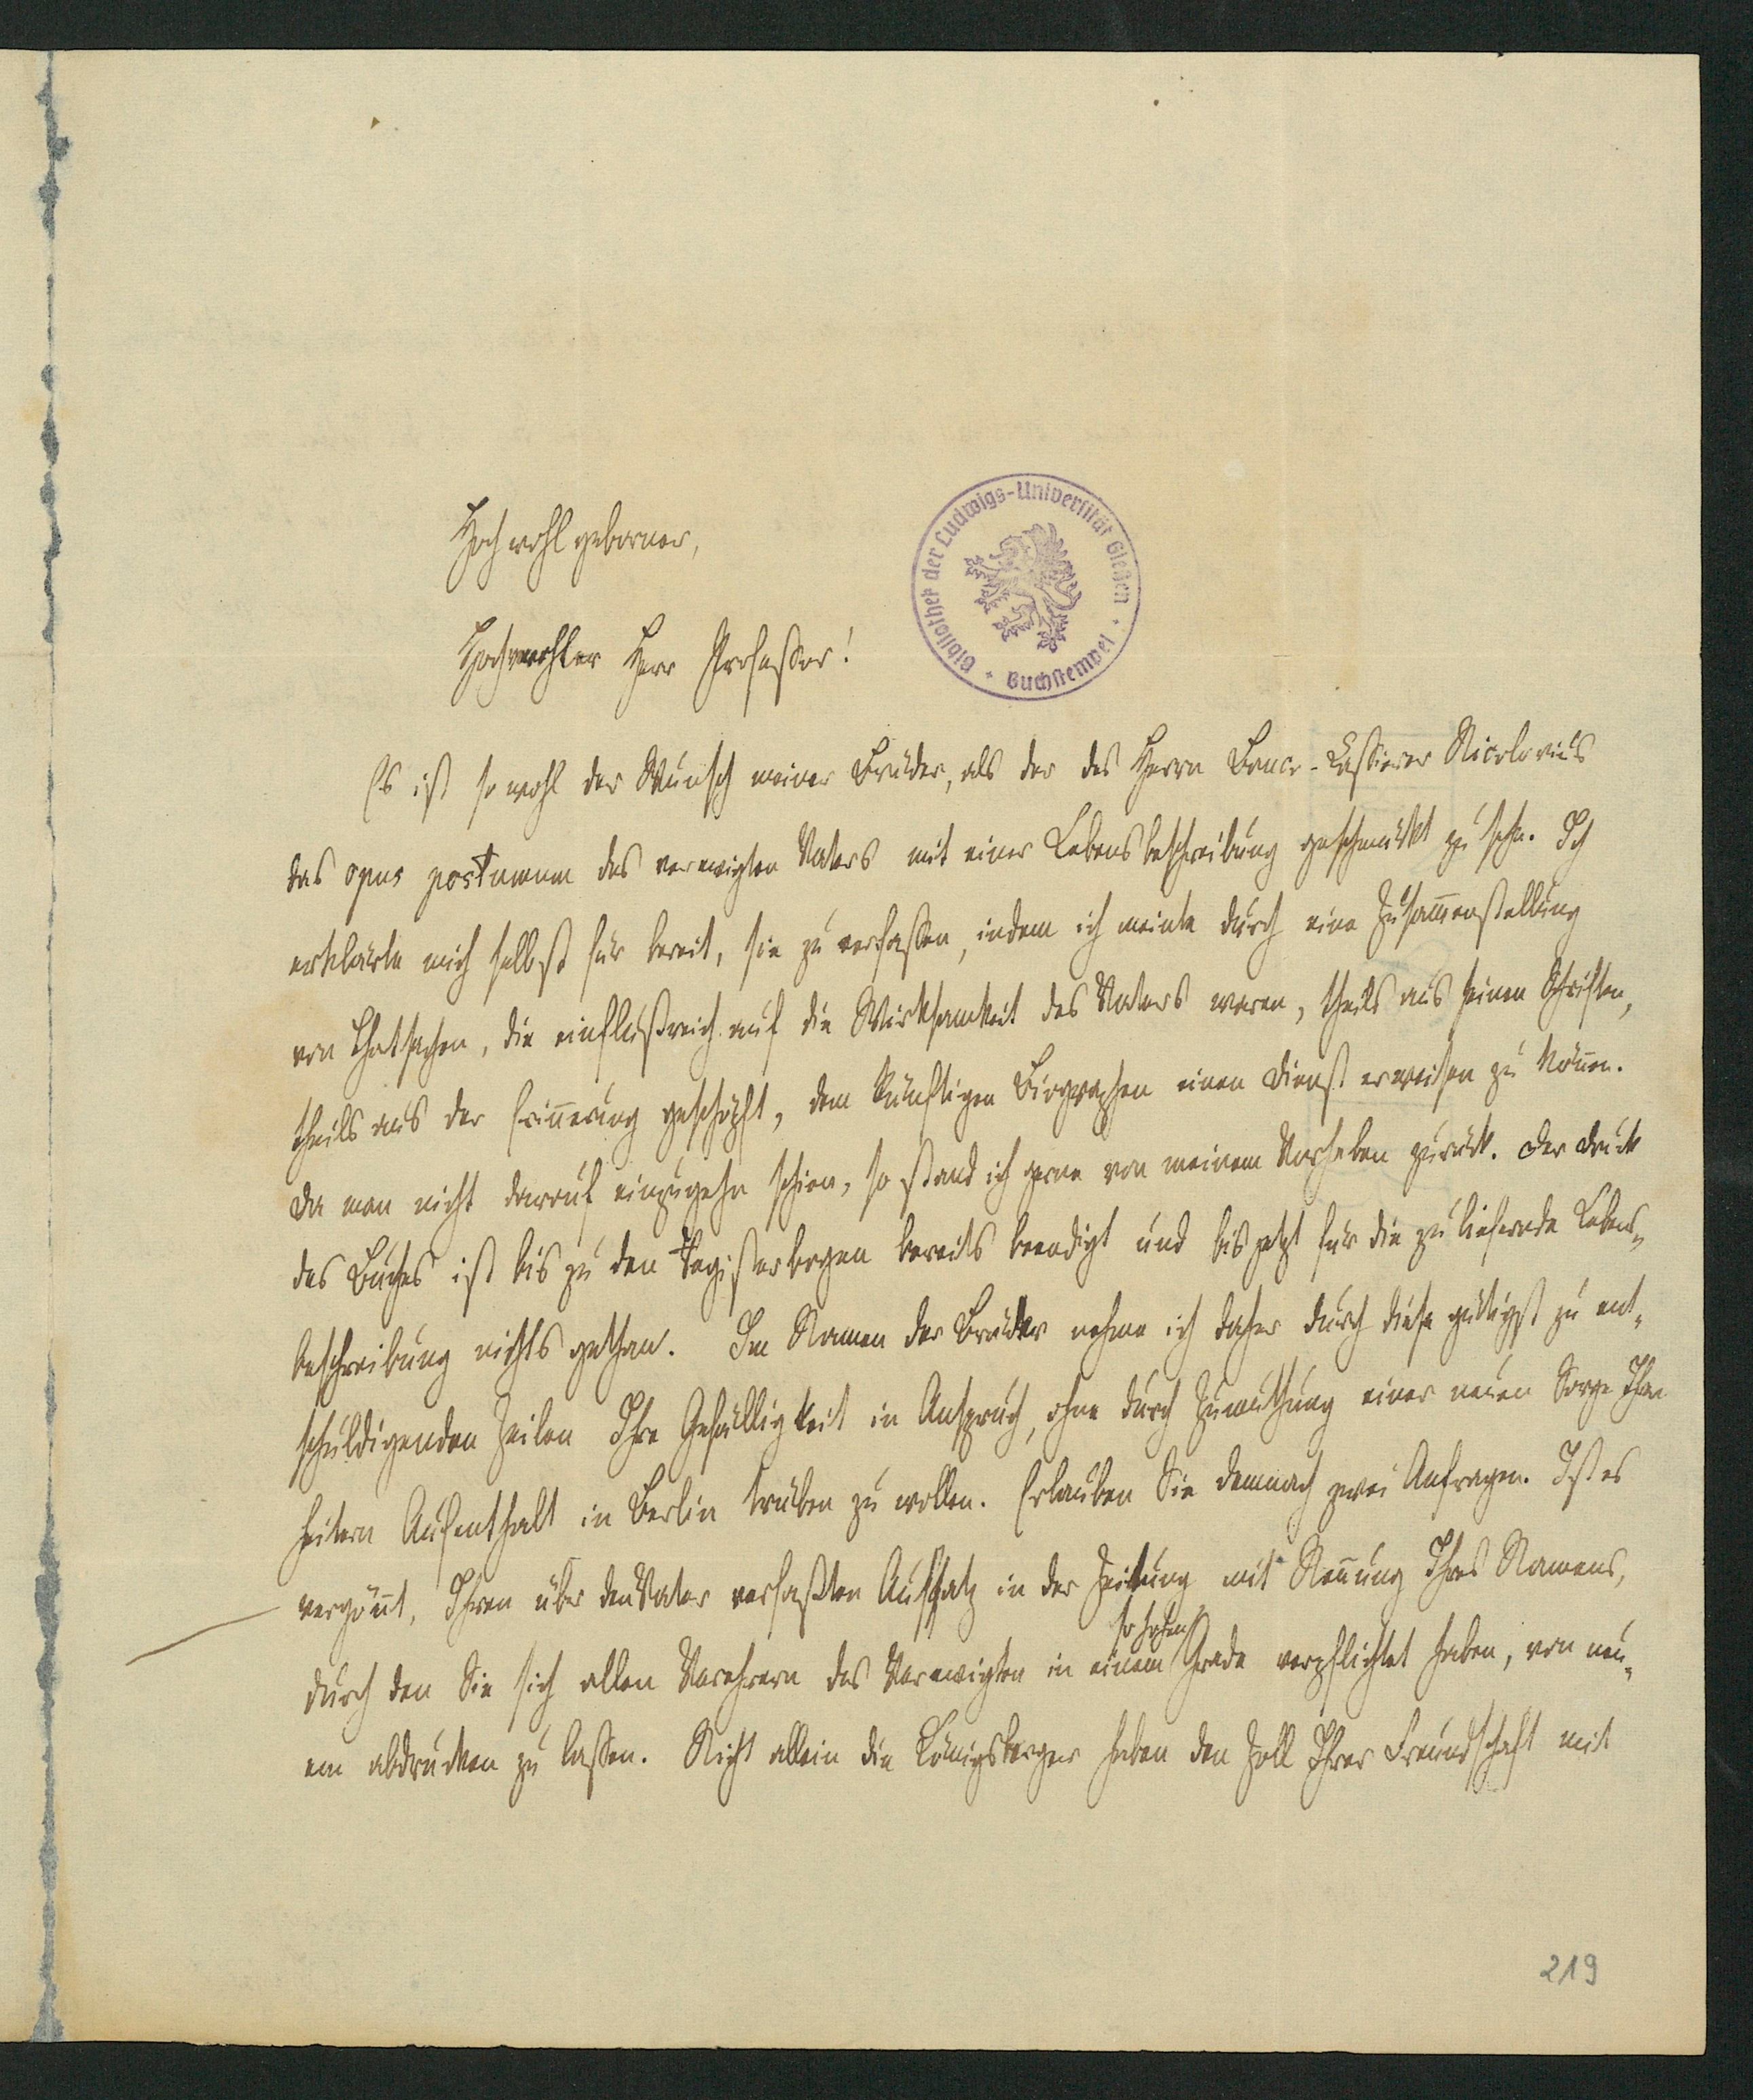 Hochwohlgeborner,
Hochverehrter Herr Professor!
Bibliothek der Ludwigs-Universität Gießen · Buchstempel ·
Es ist so wohl der Wunsch meiner Brüder, als der des Herrn Banco-Cassierer Nicolovius
das opus postumum des verewigten Vaters mit einer Lebensbeschreibung geschmückt zu sehn. Ich
erklärte mich selbst für bereit, sie zu verfassen, indem ich meinte durch eine Zusam̄enstellung
von Thatsachen, die einflußreich auf die Wirksamkeit des Vaters waren, theils aus seinen Schriften,
theils aus der Erin̄erung geschöpft, dem künftigen Biographen einen Dienst erweisen zu kön̄en.
Da man nicht darauf einzugehn schien, so stand ich gerne von meinem Vorhaben zurück. Der Druck
des Buches ist bis zu den Registerbogen bereits beendigt und bis jetzt für die zu liefernde Lebens-
beschreibung nichts gethan. Im Namen der Brüder nehme ich daher durch diese gütigst zu ent-
schuldigenden Zeilen Ihre Gefälligkeit in Anspruch, ohne durch Zumuthung einer neuen Sorge Ihren
heitern Aufenthalt in Berlin trüben zu wollen. Erlauben Sie demnach zwei Anfragen. Ist es
vergön̄t, Ihren über den Vater verfaßten Aufsatz in der Zeitung mit Nen̄ung Ihres Namens,
so hohen
durch den Sie sich allen Verehrern des Verewigten in einem Grade verpflichtet haben, von neu-
em abdrucken zu lassen. Nicht allein die Königsberger haben den Zoll Ihrer Freundschaft mit
219